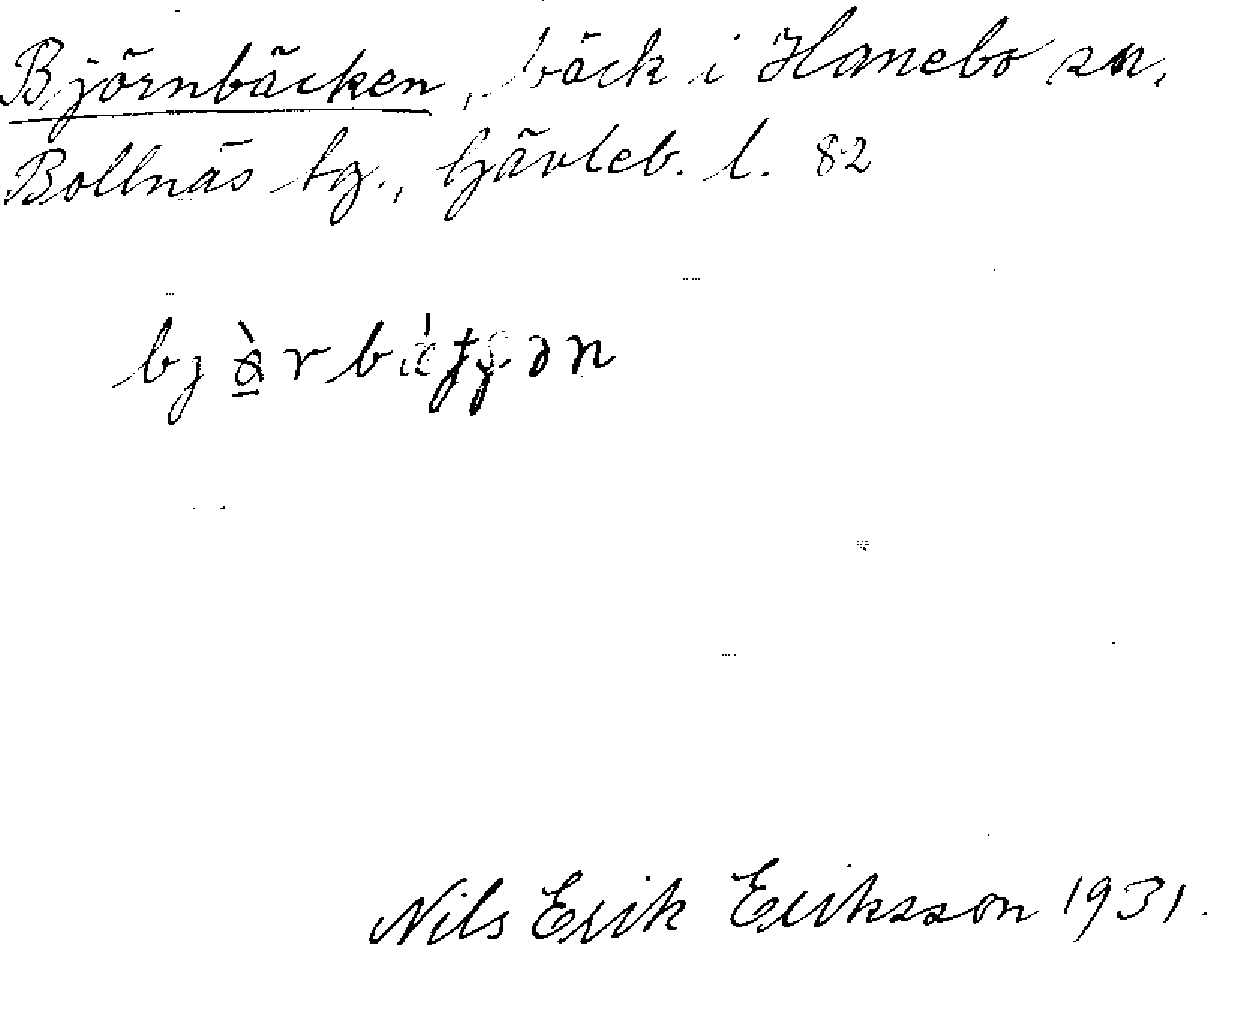 Björnbäcken, bäck i Hanebo sn,
Bollnäs tg., Gävleb. l. 82
Nils Erik Eriksson 1931.